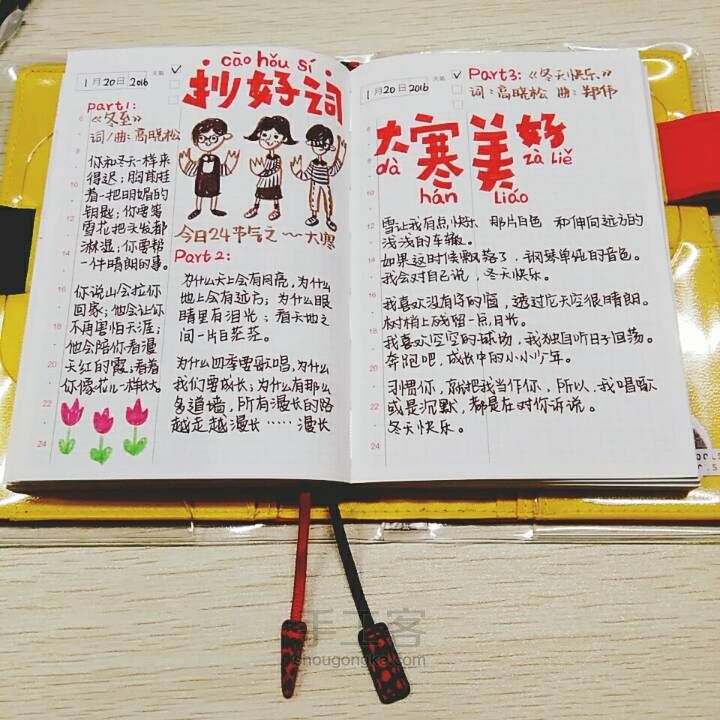 1月20日2016
天氣
cāo hǒu sí
抄好词
Part1:
《冬至》
词/曲:高晓松
你和冬天一样来
得迟;胸前挂
着一把明媚的
钥匙;你要等
雪花把头发都
淋湿;你要帮
一件晴朗的事。
你说山会拉你
回家;他会让你
不再害怕天涯;
他会陪你看漫
天红的霞;看着
你像花儿一样长大
今日24节气之~~大寒
Part2:
为什么天上会有月亮,为什么
地上会有远方;为什么眼
睛里有泪光;看天地之
间一片茫茫。
为什么四季要歌唱,为什么
我们要成长;为什么有那么
多道墙,所有漫长的路
越走越漫长……漫长
1月20日2016
天氣
Part3:《冬天快乐》
词:高晓松 曲:郑伟
大寒美好
dà hán liáo zà liě
雪让我有点快乐 那片白色 和伸向远方的
浅浅的车辙。
如果这时候飘落了,钢琴单纯的音色。
我会对自己说,冬天快乐。
我喜欢没有你的窗,透过它天空很晴朗。
树梢上残留一点月光。
我喜欢空空的球场,我独自听日子回荡。
奔跑吧,成长中的小小少年。
别恨你,就把我当作你,所以,我唱歌
或是沉默,都是在对你诉说。
冬天快乐。
手工客
shougongke.com